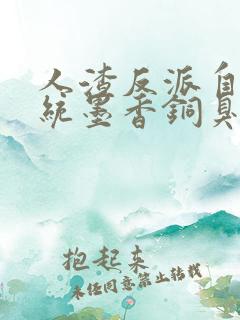 人渣反派自
統墨香銅臭
抱起来
未经同意禁止转载